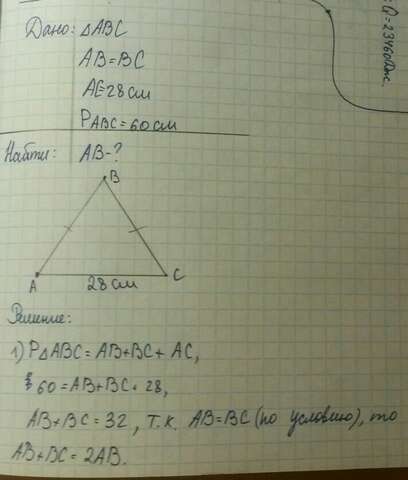 Дано: △ABC
AB=BC
AC=28см
P ABC=60см
Найти: AB-?
B
A
28см
C
Решение:
1) P△ABC=AB+BC+AC,
60=AB+BC+28,
AB+BC=32, т.к. AB=BC (по условию), то
AB+BC=2AB.
: Q=23460Дж.